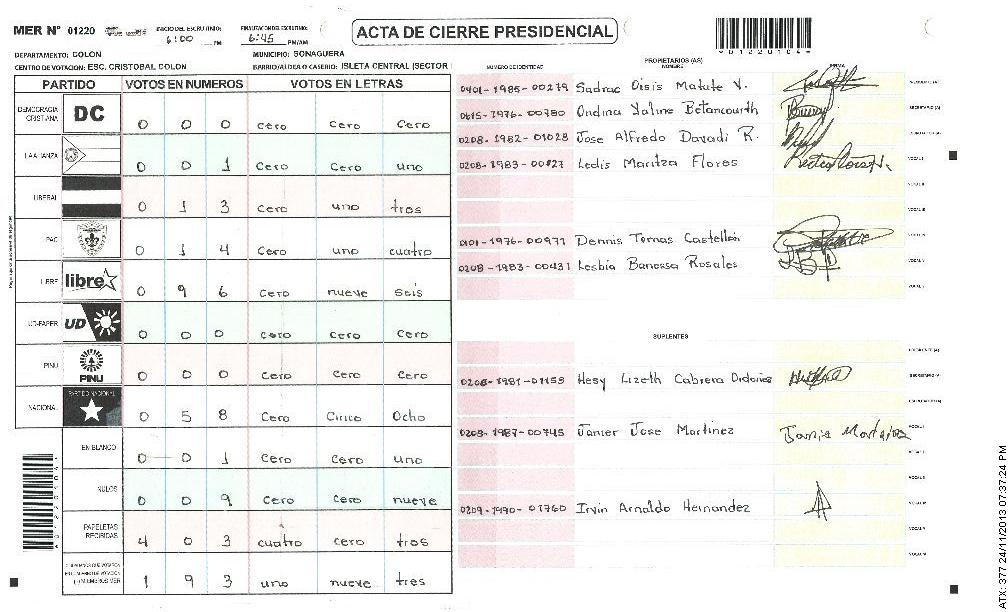 MER N° 01220
INICIO DEL ESCRUTINIO:
6:00 PM
FINALIZACION DEL ESCRUTINIO:
6:45 PM/AM
ACTA DE CIERRE PRESIDENCIAL
DEPARTAMENTO: COLON
MUNICIPIO: SONAGUERA
CENTRO DE VOTACION: ESC. CRISTOBAL COLON
BARRIO/ALDEA O CASERIO: ISLETA CENTRAL (SECTOR
PARTIDO VOTOS EN NUMEROS VOTOS EN LETRAS
DEMOCRACIA CRISTIANA DC 0 0 0 cero Cero Cero
LA ALIANZA 0 0 1 Cero Cero uno
LIBERAL 0 1 3 cero uno tros
PAC 0 1 4 Cero uno cuatro
LIBRE libre 0 9 6 Cero nueve seis
UD-FAPER UD 0 0 0 cero cero Cero
PINU PINU 0 0 0 Cero Cero Cero
NACIONAL PARTIDO NACIONAL 0 5 8 Cero Cinco Ocho
EN BLANCO 0 0 1 Cero Cero uno
NULOS 0 0 9 Cero Cero nueve
PAPELETAS RECIBIDAS 4 0 3 cuatro cero tros
1 9 3 uno nueve tres
NUMERO DE IDENTIDAD
PROPIETARIOS (AS)
NOMBRE
FIRMA
0401-1985-00279 Sadrac Disis Matute V.
0615-1976-00780 Ondina Yaline Betancourth
0208-1982-01028 Jose Alfredo Davadi R.
0208-1983-00127 Ledis Maritza Flores
0101-1976-00977 Dennis Tomas Castellón
0208-1983-00431 Lesbia Banessa Rosales
SUPLENTES
0208-1981-01159 Hesy Lizeth Cabrera Ordoñes
0208-1987-00745 Janier Jose Martinez
0209-1990-01760 Irvin Arnaldo Hernandez
ATX: 377 24/11/2013 07:37:24 PM